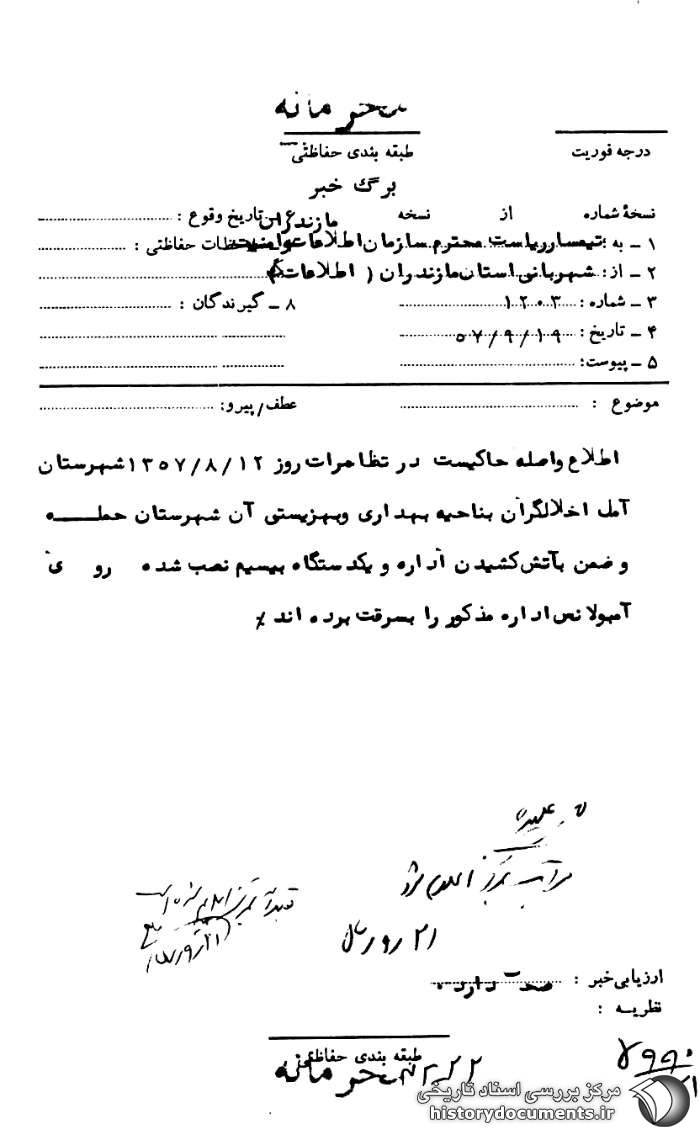 محرمانه
درجه فوریت
طبقه بندی حفاظتی
برگ خبر
نسخهٔ شماره از نسخه
۶ ـ تاریخ وقوع :
مازندران
۱ ـ به : تیمسار ریاست محترم سازمان اطلاعات و امنیت
ملاحظات حفاظتی :
۲ ـ از : شهربانی استان مازندران ( اطلاعات )
۳ ـ شماره : ۱۲۰۳
۸ ـ گیرندگان :
۴ ـ تاریخ : ۵۷/۹/۱۹
۵ ـ پیوست :
موضوع :
عطف/پیرو:
اطلاع واصله حاکیست در تظاهرات روز ۱۳۵۷/۸/۱۲ شهرستان
آمل اخلالگران بناحیه بهداری وبهزیستی آن شهرستان حمله
و ضمن بآتش کشیدن اداره و یکدستگاه بیسیم نصب شده روی
آمبولانس اداره مذکور را بسرقت برده اند ٪
مراتب بمرکز اعلام شود
ارزیابی خبر : صحت دارد .
نظریه :
طبقه بندی حفاظتی
محرمانه
مرکز بررسی اسناد تاریخی
historydocuments.ir